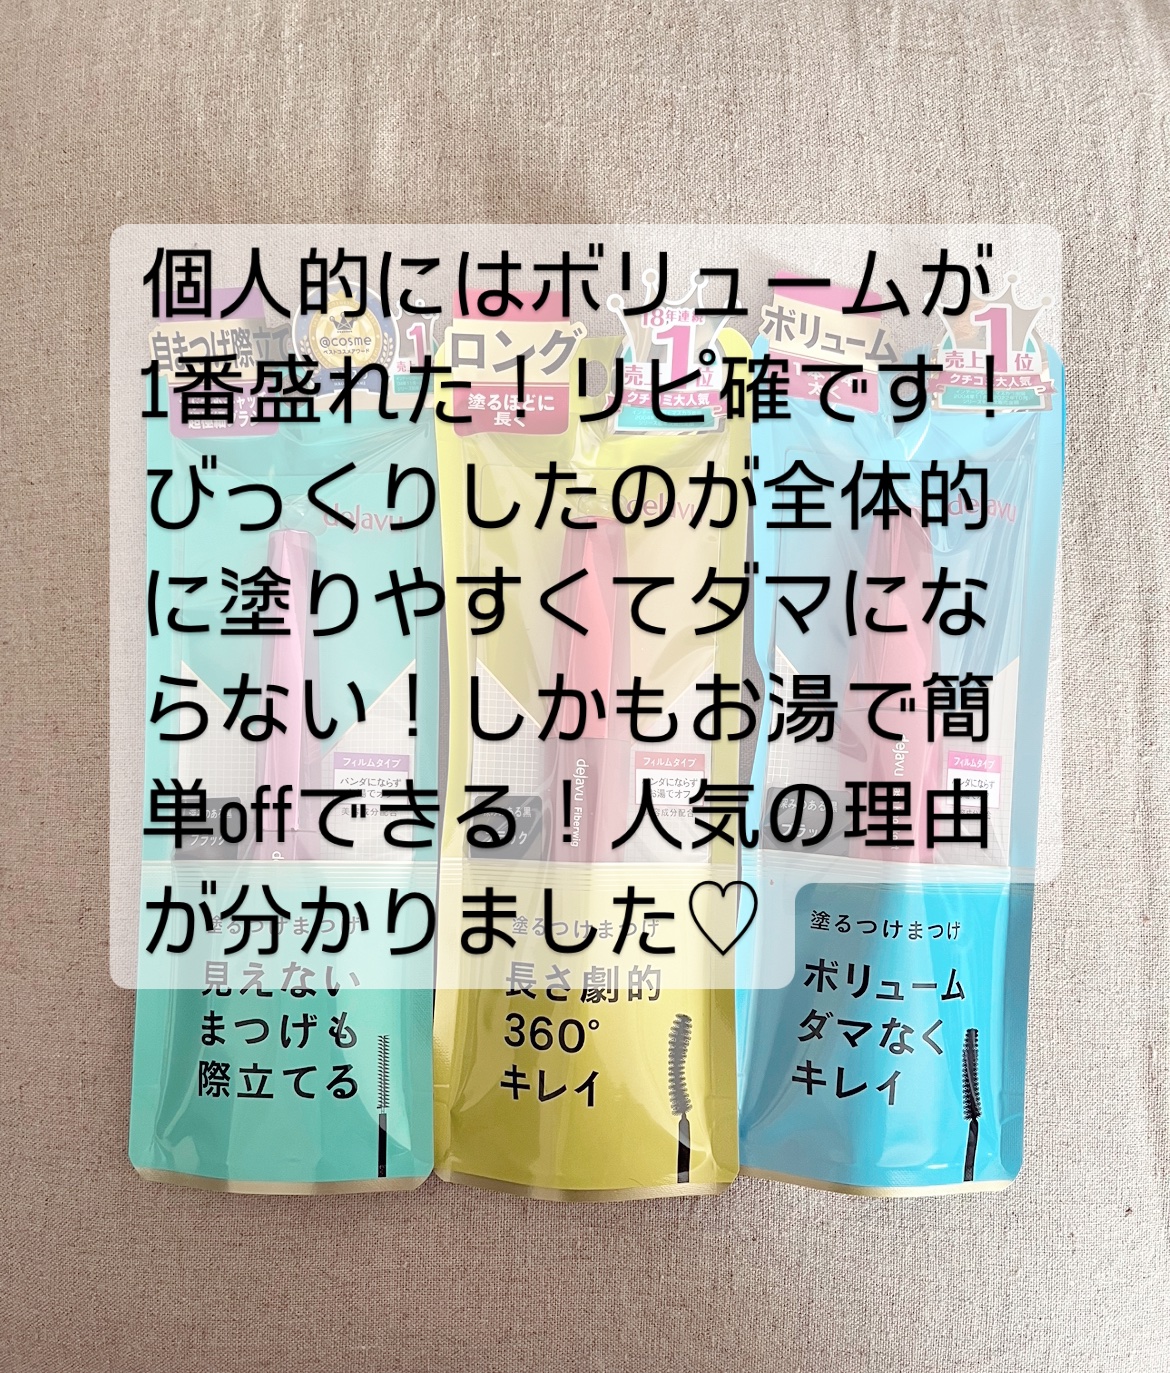 個人的にはボリュームが
1番盛れた！リピ確です！
びっくりしたのが全体的
に塗りやすくてダマにな
らない！しかもお湯で簡
単offできる！人気の理由
が分かりました♡
自まつげ際立て
@cosme
ベストコスメアワード
1
ロング
塗るほどに
長く
18年連続
売上1位
クチコミ大人気
ボリューム
太く
売上1位
クチコミ大人気
dejavu
dejavu
dejavu
フィルムタイプ
パンダにならず
お湯でオフ
美容成分配合
ブラック
dejavu Fiberwig
フィルムタイプ
パンダにならず
お湯でオフ
美容成分配合
dejavu
フィルムタイプ
パンダにならず
塗るつけまつげ
見えない
まつげも
際立てる
塗るつけまつげ
長さ劇的
360°
キレイ
塗るつけまつげ
ボリューム
ダマなく
キレイ